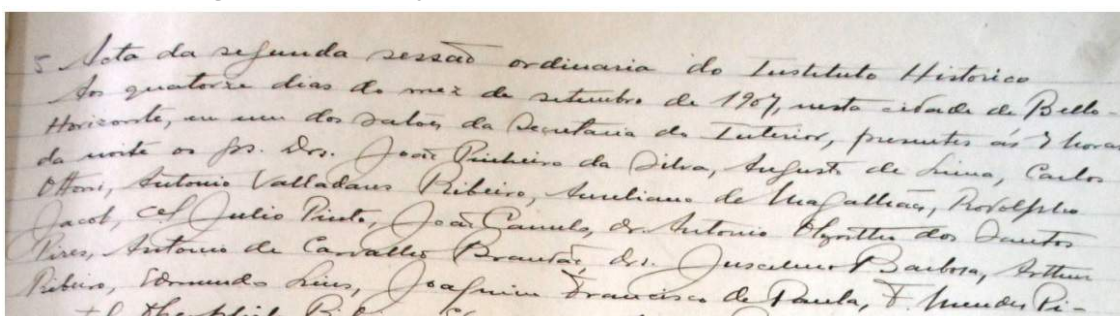 5 Acta da segunda sessão ordinaria do Instituto Historico
Aos quatorze dias do mez de setembro de 1907, nesta cidade de Bello
Horizonte, em um dos salões da Secretaria do Interior, presentes ás 7 horas
da noite os srs. Drs. João Pinheiro da Silva, Augusto de Lima, Carlos
Ottoni, Antonio Valladares Ribeiro, Aureliano de Magalhães, Rodolpho
Jacob, cel Julio Pinto, João Camelo, dr. Antonio Olyntho dos Santos
Pires, Antonio de Carvalho Brandão, drs. Juscelino Barbosa, Arthur
Ribeiro, Edmundo Lins, Joaquim Francisco de Paula, F. Mendes Pi-